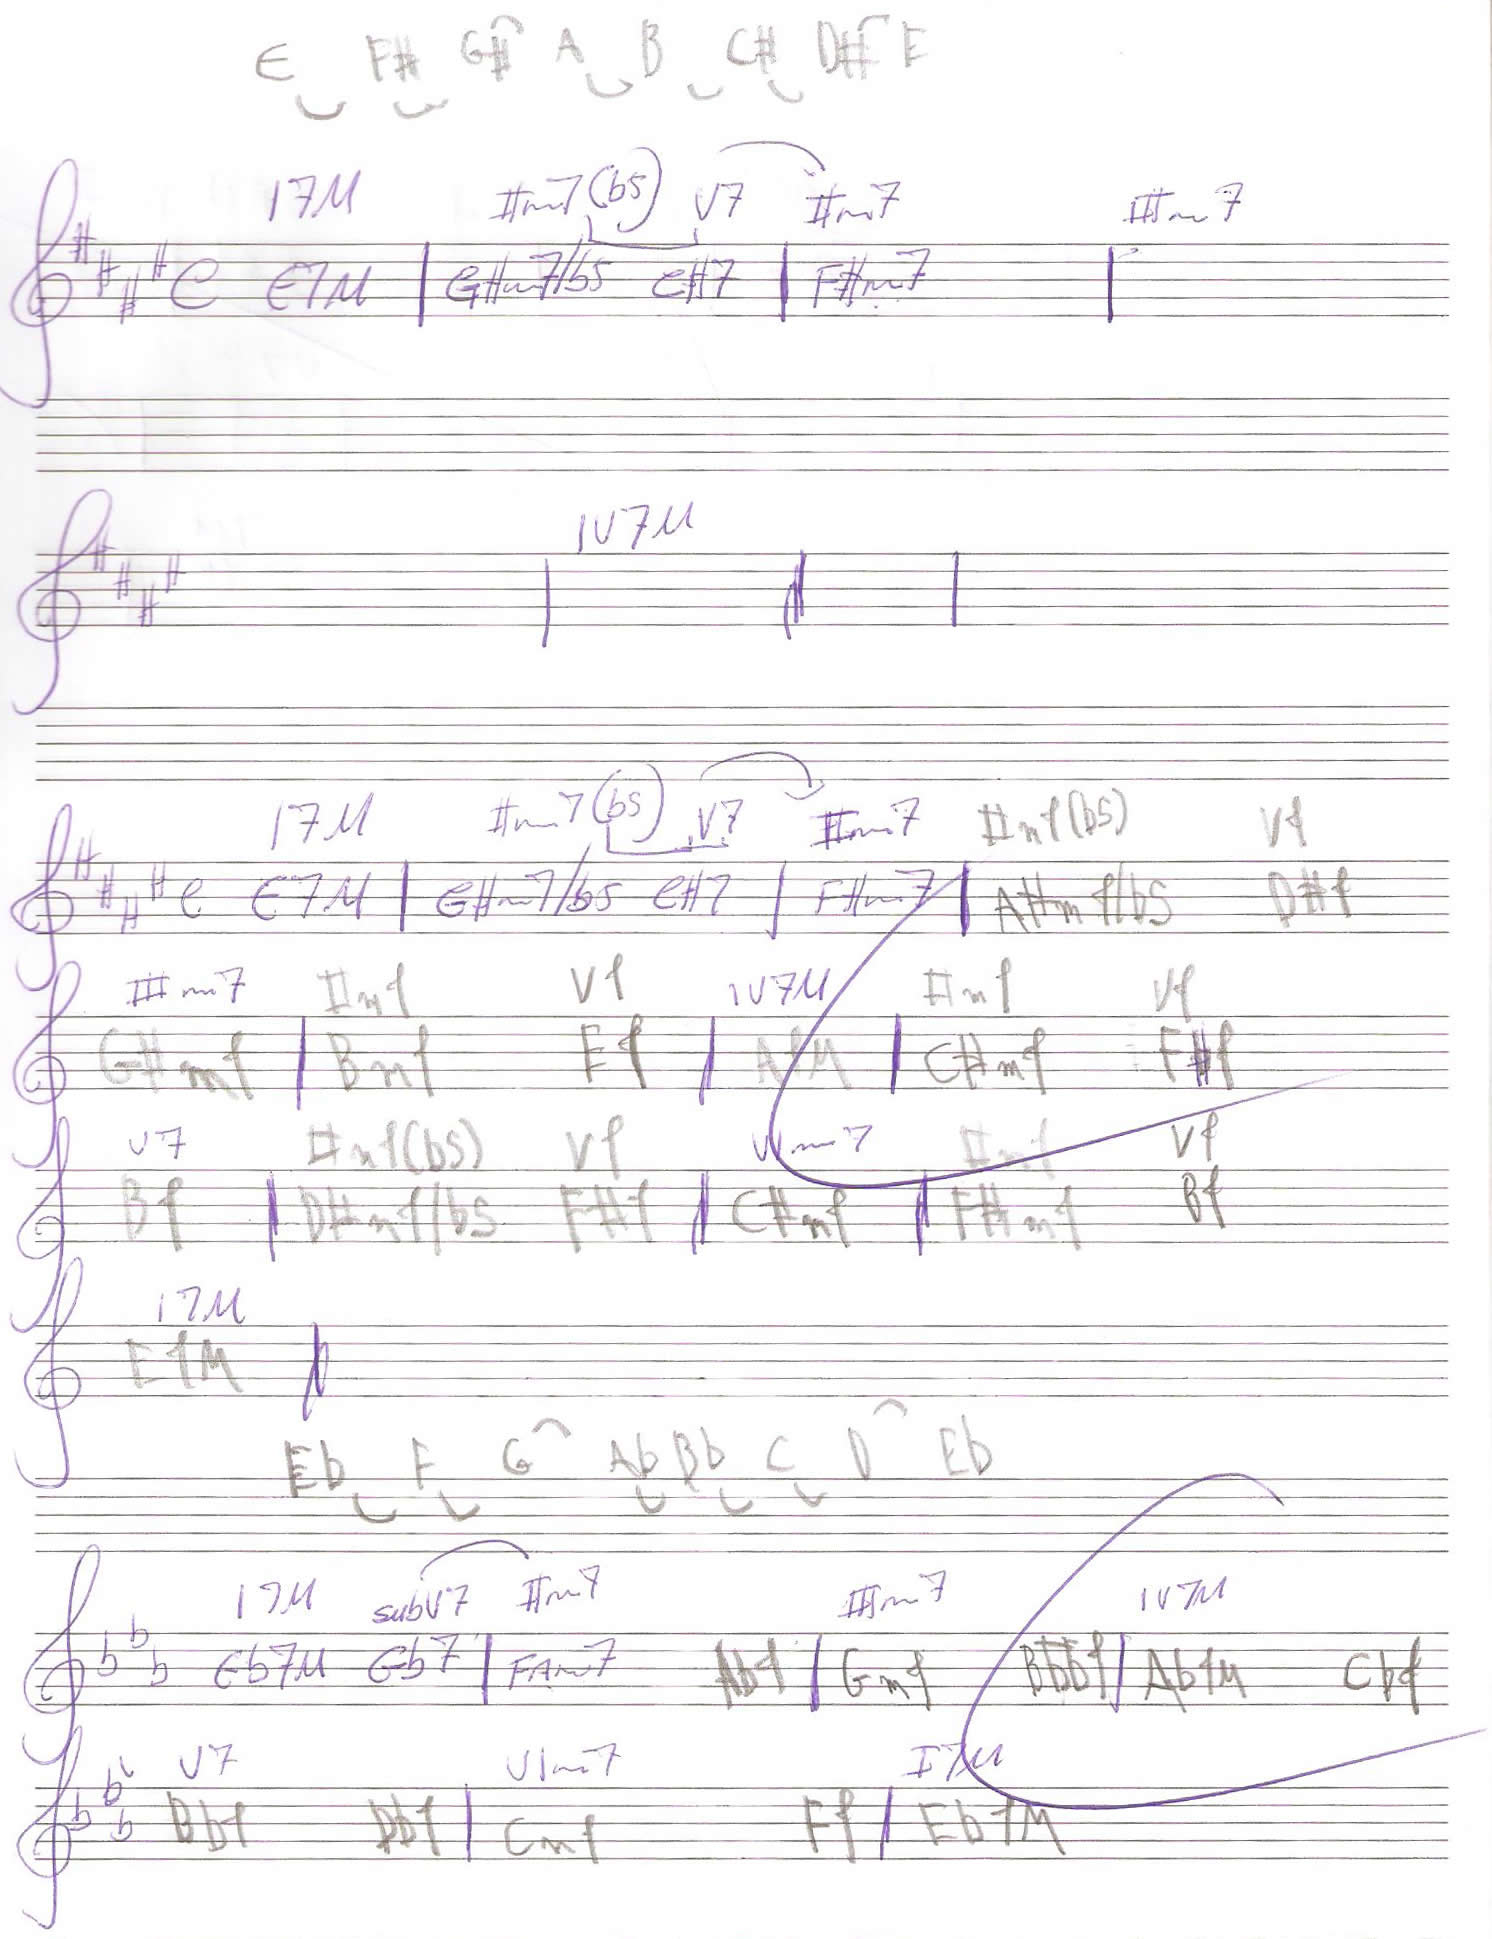 E F# G# A B C# D# E
I7M IIm7(b5) V7 IIm7 IIIm7
C E7M G#m7/b5 C#7 F#m7
IV7M
I7M IIm7(b5) V7 IIm7 IIm7(b5) V7
C E7M G#m7/b5 C#7 F#m7 A#m7/b5 D#7
IIIm7 IIm7 V7 IV7M IIm7 V7
G#m7 Bm7 E7 A7M C#m7 F#7
V7 IIm7(b5) V7 VIm7 IIm7 V7
B7 D#m7/b5 F#7 C#m7 F#m7 B7
I7M
E7M
Eb F G Ab Bb C D Eb
I7M subV7 IIm7 IIIm7 IV7M
Eb7M Gb7 Fm7 Ab7 Gm7 Bbb7 Ab7M Cb7
V7 VIm7 I7M
Bb7 Db7 Cm7 F7 Eb7M